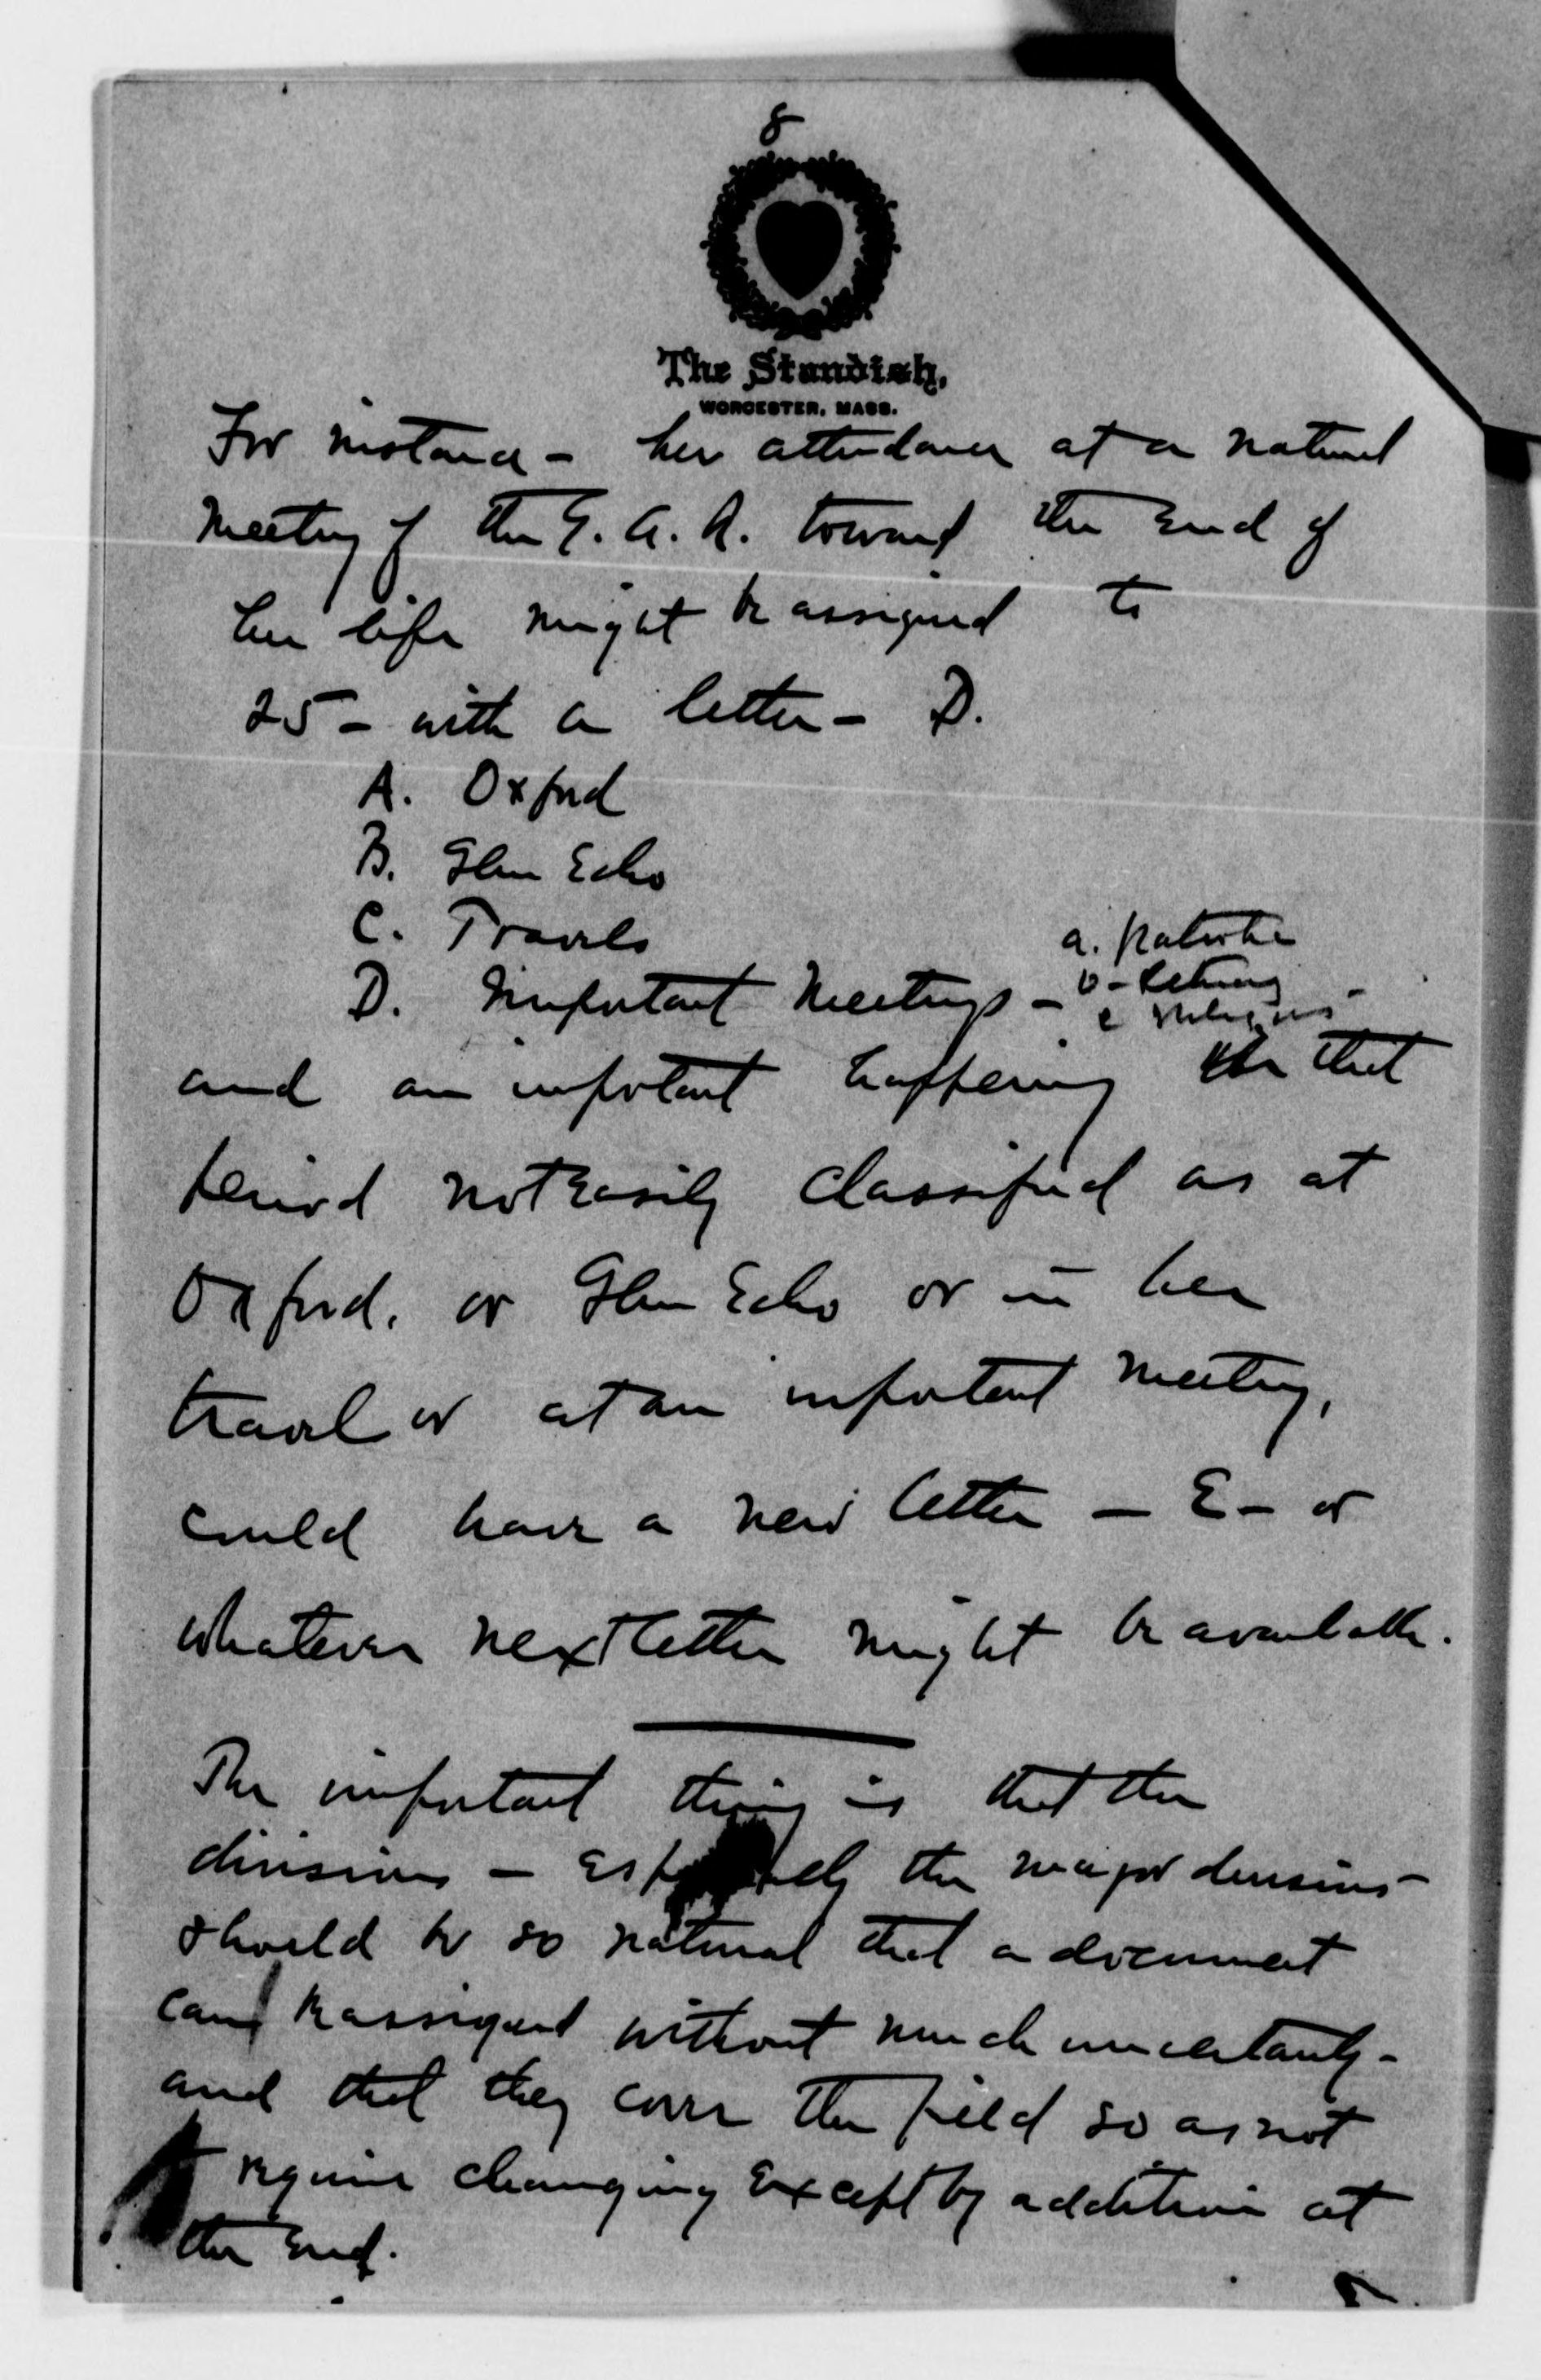 8
The Standish,
WORCESTER, MASS.
For instance - her attendance at a national
meeting of the G. A. R. toward the end of
her life might be assigned to
25 - with a letter - D.
A. Oxford
B. Glen Echo
C. Travels
a. patriotic
D. Important Meetings -
c religious -
and an important happening in that
period not easily classified as at
Oxford. or Glen Echo or in her
travel or at an important meeting,
could have a new letter - E - or
whatever next letter might be available.
The important thing is that the
divisions - especially the major divisions -
should be so natural that a document
can be assigned without much uncertainty -
and that they cover the field so as not
to require changing except by addition at
the end.